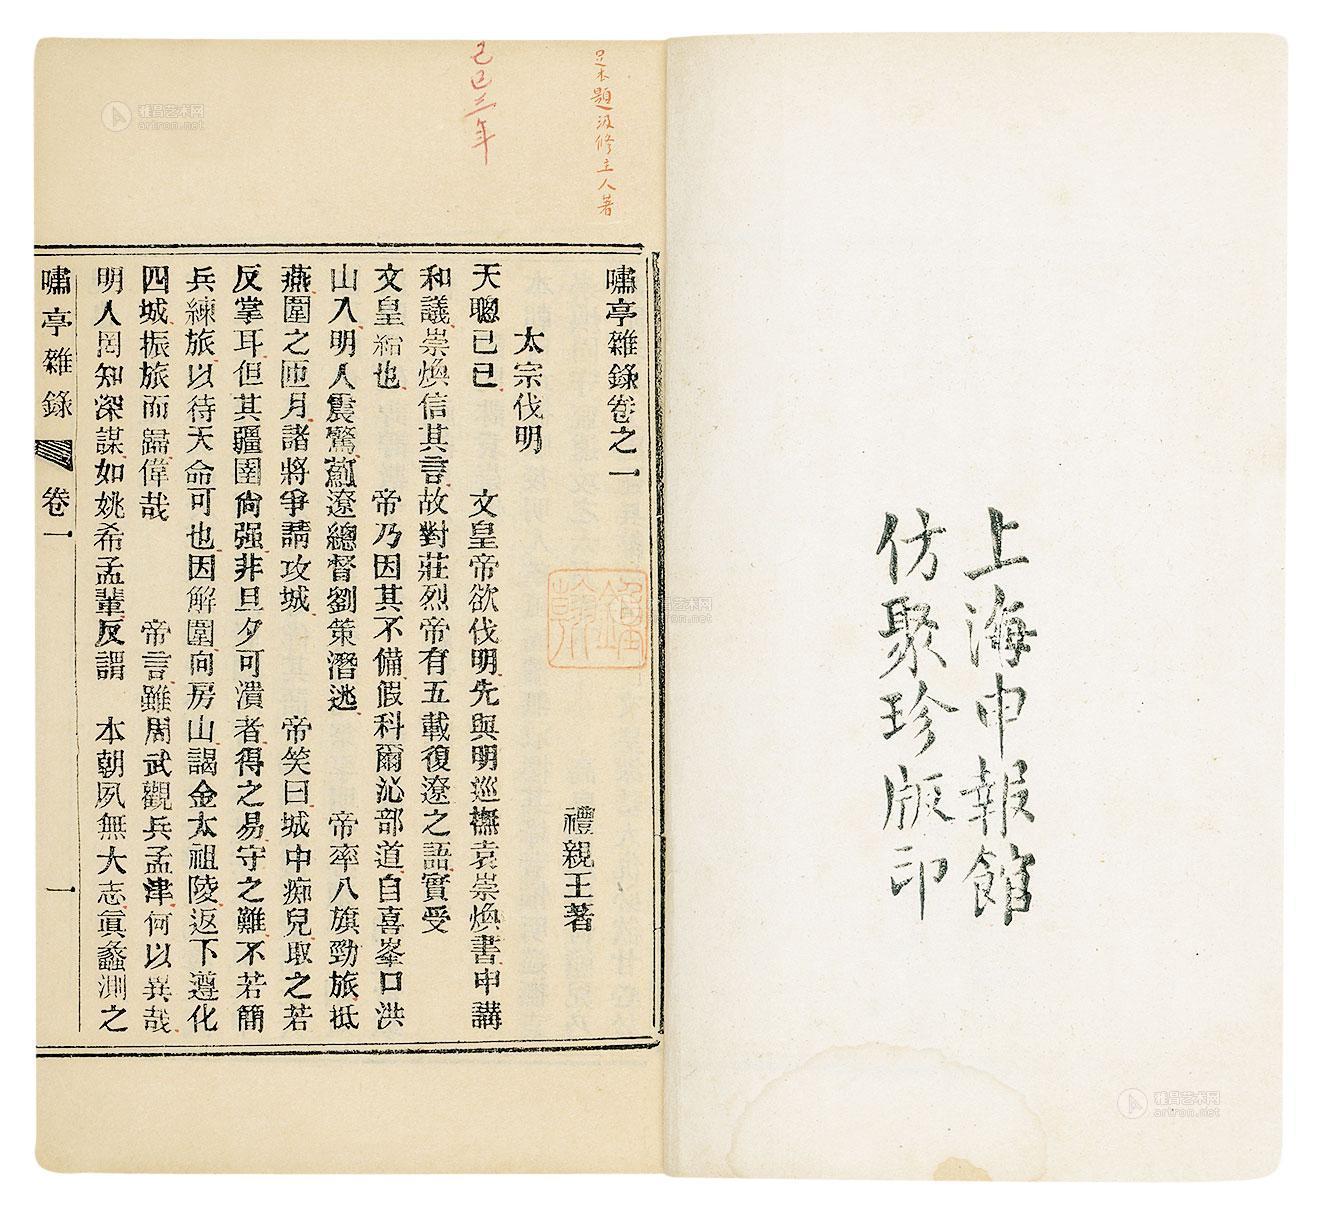 上海申報館
仿聚珍版印
足本題汲修主人著
己巳三年
嘯亭雜錄卷之一
禮親王著
太宗伐明
天聰己巳 文皇帝欲伐明先與明巡撫袁崇煥書申講
和議崇煥信其言故對莊烈帝有五載復遼之語實受
文皇紿也 帝乃因其不備假科爾沁部道自喜峯口洪
山入明人震驚薊遼總督劉策潛逃 帝率八旗勁旅抵
燕圍之匝月諸將爭請攻城 帝笑曰城中痴兒取之若
反掌耳但其疆圉尙强非旦夕可潰者得之易守之難不若簡
兵練旅以待天命可也因解圍向房山謁金太祖陵返下遵化
四城振旅而歸偉哉 帝言雖周武觀兵孟津何以異哉
明人罔知深謀如姚希孟輩反謂 本朝夙無大志眞蠡測之
嘯亭雜錄 卷一 一
雅昌艺术网
artron.net
雅昌艺术网
artron.net
artron.net